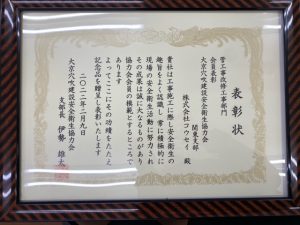 表彰状
管工事改修工事部門
会員表彰 関東支部
大京穴吹建設安全衛生協力会
株式会社コウセイ 殿
貴社は工事施工に際し安全衛生の
趣旨をよく認識し常に積極的に
現場の安全衛生活動に努力され
その成果は誠に大なるものがあり
協力会会員の模範とするところで
あります
よってここにその功績をたたえ
記念品を贈呈し表彰いたします
二〇二二年二月九日
大京穴吹建設安全衛生協力会
支部長 伊勢 雄太